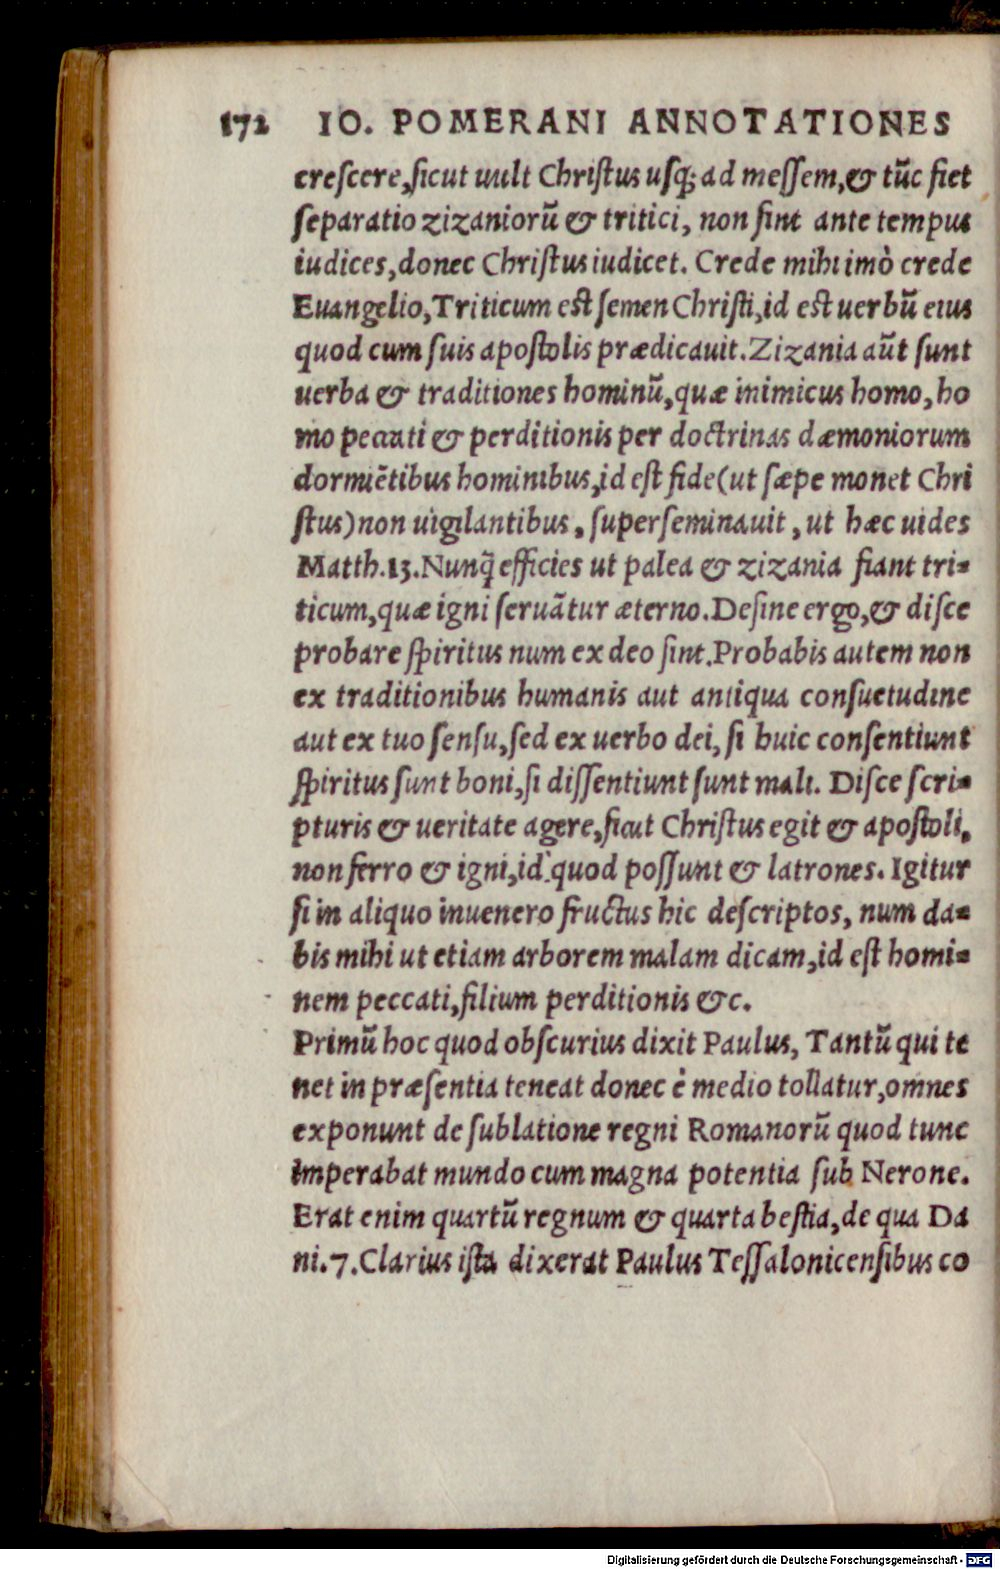 172 IO. POMERANI ANNOTATIONES
crescere, sicut uult Christus usq; ad messem, & tūc fiet
separatio zizaniorū & tritici, non sint ante tempus
iudices, donec Christus iudicet. Crede mihi imò crede
Euangelio, Triticum est semen Christi, id est uerbū eius
quod cum suis apostolis prædicauit. Zizania aūt sunt
uerba & traditiones hominū, quæ inimicus homo, ho
mo peccati & perditionis per doctrinas dæmoniorum
dormiētibus hominibus, id est fide (ut sæpe monet Chri
stus) non uigilantibus, superseminauit, ut hæc uides
Matth. 13. Nunq̃ efficies ut palea & zizania fiant tri-
ticum, quæ igni seruātur æterno. Desine ergo, & disce
probare spiritus num ex deo sint. Probabis autem non
ex traditionibus humanis aut antiqua consuetudine
aut ex tuo sensu, sed ex uerbo dei, si huic consentiunt
spiritus sunt boni, si dissentiunt sunt mali. Disce scri-
pturis & ueritate agere, sicut Christus egit & apostoli,
non ferro & igni, id quod possunt & latrones. Igitur
si in aliquo inuenero fructus hic descriptos, num da-
bis mihi ut etiam arborem malam dicam, id est homi-
nem peccati, filium perditionis &c.
Primū hoc quod obscurius dixit Paulus, Tantū qui te
net in præsentia teneat donec è medio tollatur, omnes
exponunt de sublatione regni Romanorū quod tunc
imperabat mundo cum magna potentia sub Nerone.
Erat enim quartū regnum & quarta bestia, de qua Da
ni. 7. Clarius ista dixerat Paulus Tessalonicensibus co
Digitalisierung gefördert durch die Deutsche Forschungsgemeinschaft - DFG